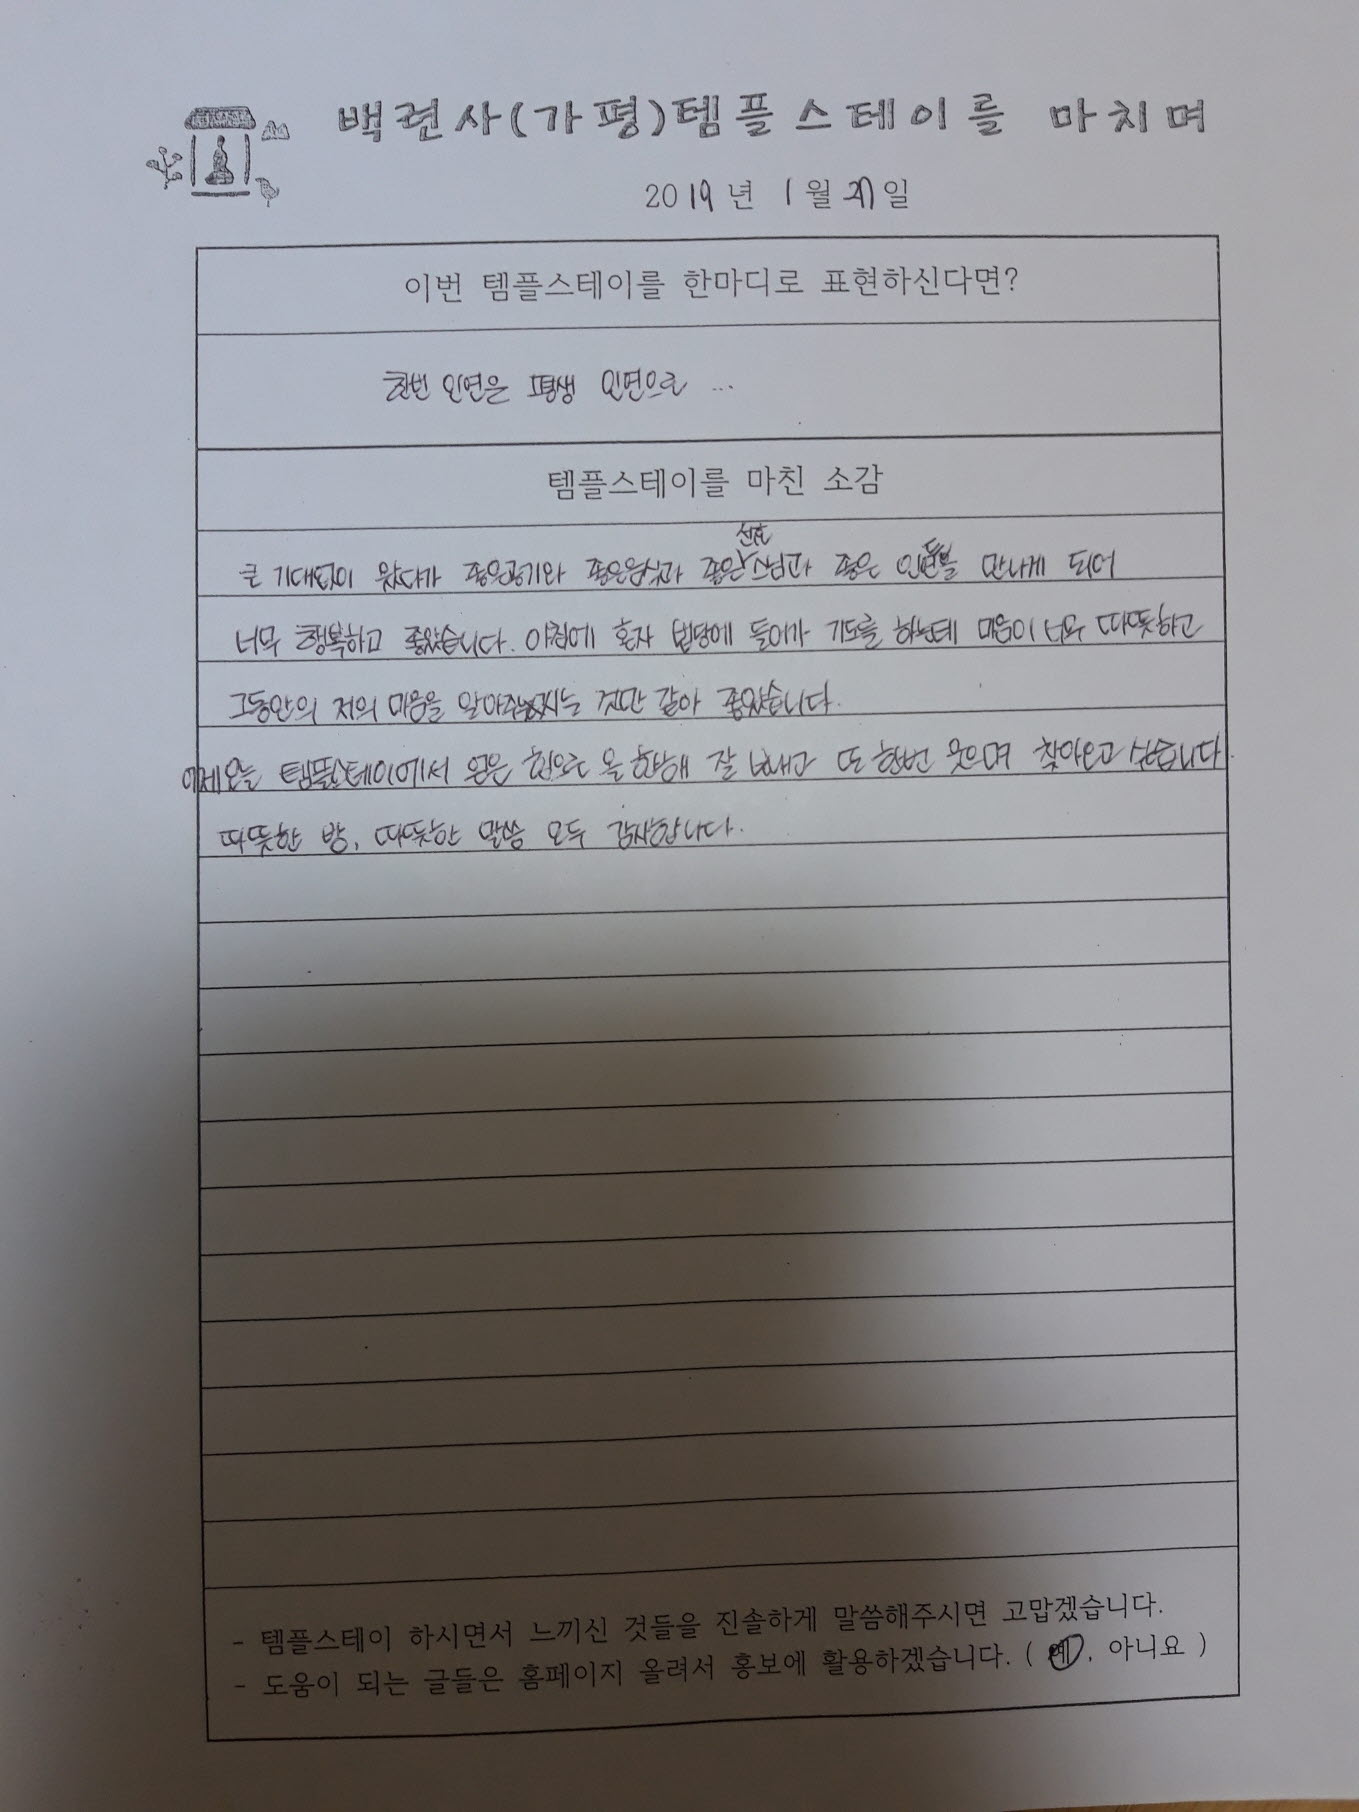 백련사(가평)템플스테이를 마치며
2019년 1월 27일
이번 템플스테이를 한마디로 표현하신다면?
한번 인연은 평생 인연으로 ...
템플스테이를 마친 소감
큰 기대없이 왔다가 좋은공기와 좋은음식과 좋은 스님과 좋은 인연들을 만나게 되어
너무 행복하고 좋았습니다. 아침에 혼자 법당에 들어가 기도를 하는데 마음이 너무 따뜻하고
그동안의 저의 마음을 알아주시는 것만 같아 좋았습니다.
이제 오늘 템플스테이에서 얻은 힘으로 올 한해 잘 보내고 또 한번 웃으며 찾아오고 싶습니다.
따뜻한 방, 따뜻한 말씀 모두 감사합니다.
- 템플스테이 하시면서 느끼신 것들을 진솔하게 말씀해주시면 고맙겠습니다.
- 도움이 되는 글들은 홈페이지 올려서 홍보에 활용하겠습니다. ( 예, 아니요 )